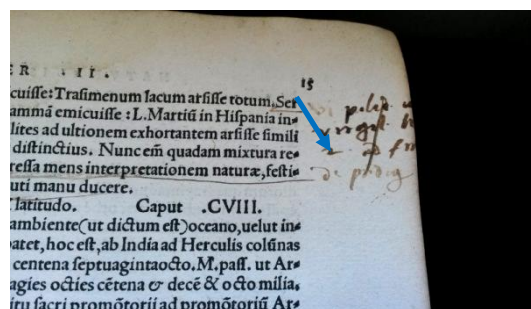 ER .II. 15
cuisse: Trasimenum lacum arsisse totum. Ser
ammā emicuisse: L. Martiū in Hispania in-
lites ad ultionem exhortantem arsisse simili
distinctius. Nunc em̄ quadam mixtura re-
ressa mens interpretationem naturæ, festi-
uti manu ducere.
latitudo. Caput .CVIII.
ambiente(ut dictum est)oceano, uelut in-
patet, hoc est, ab India ad Herculis colūnas
centena septuagintaocto. M. pass. ut Ar-
agies octies cētena & decē & octo milia,
itu sacri promōtorii ad promōtoriū Ar-